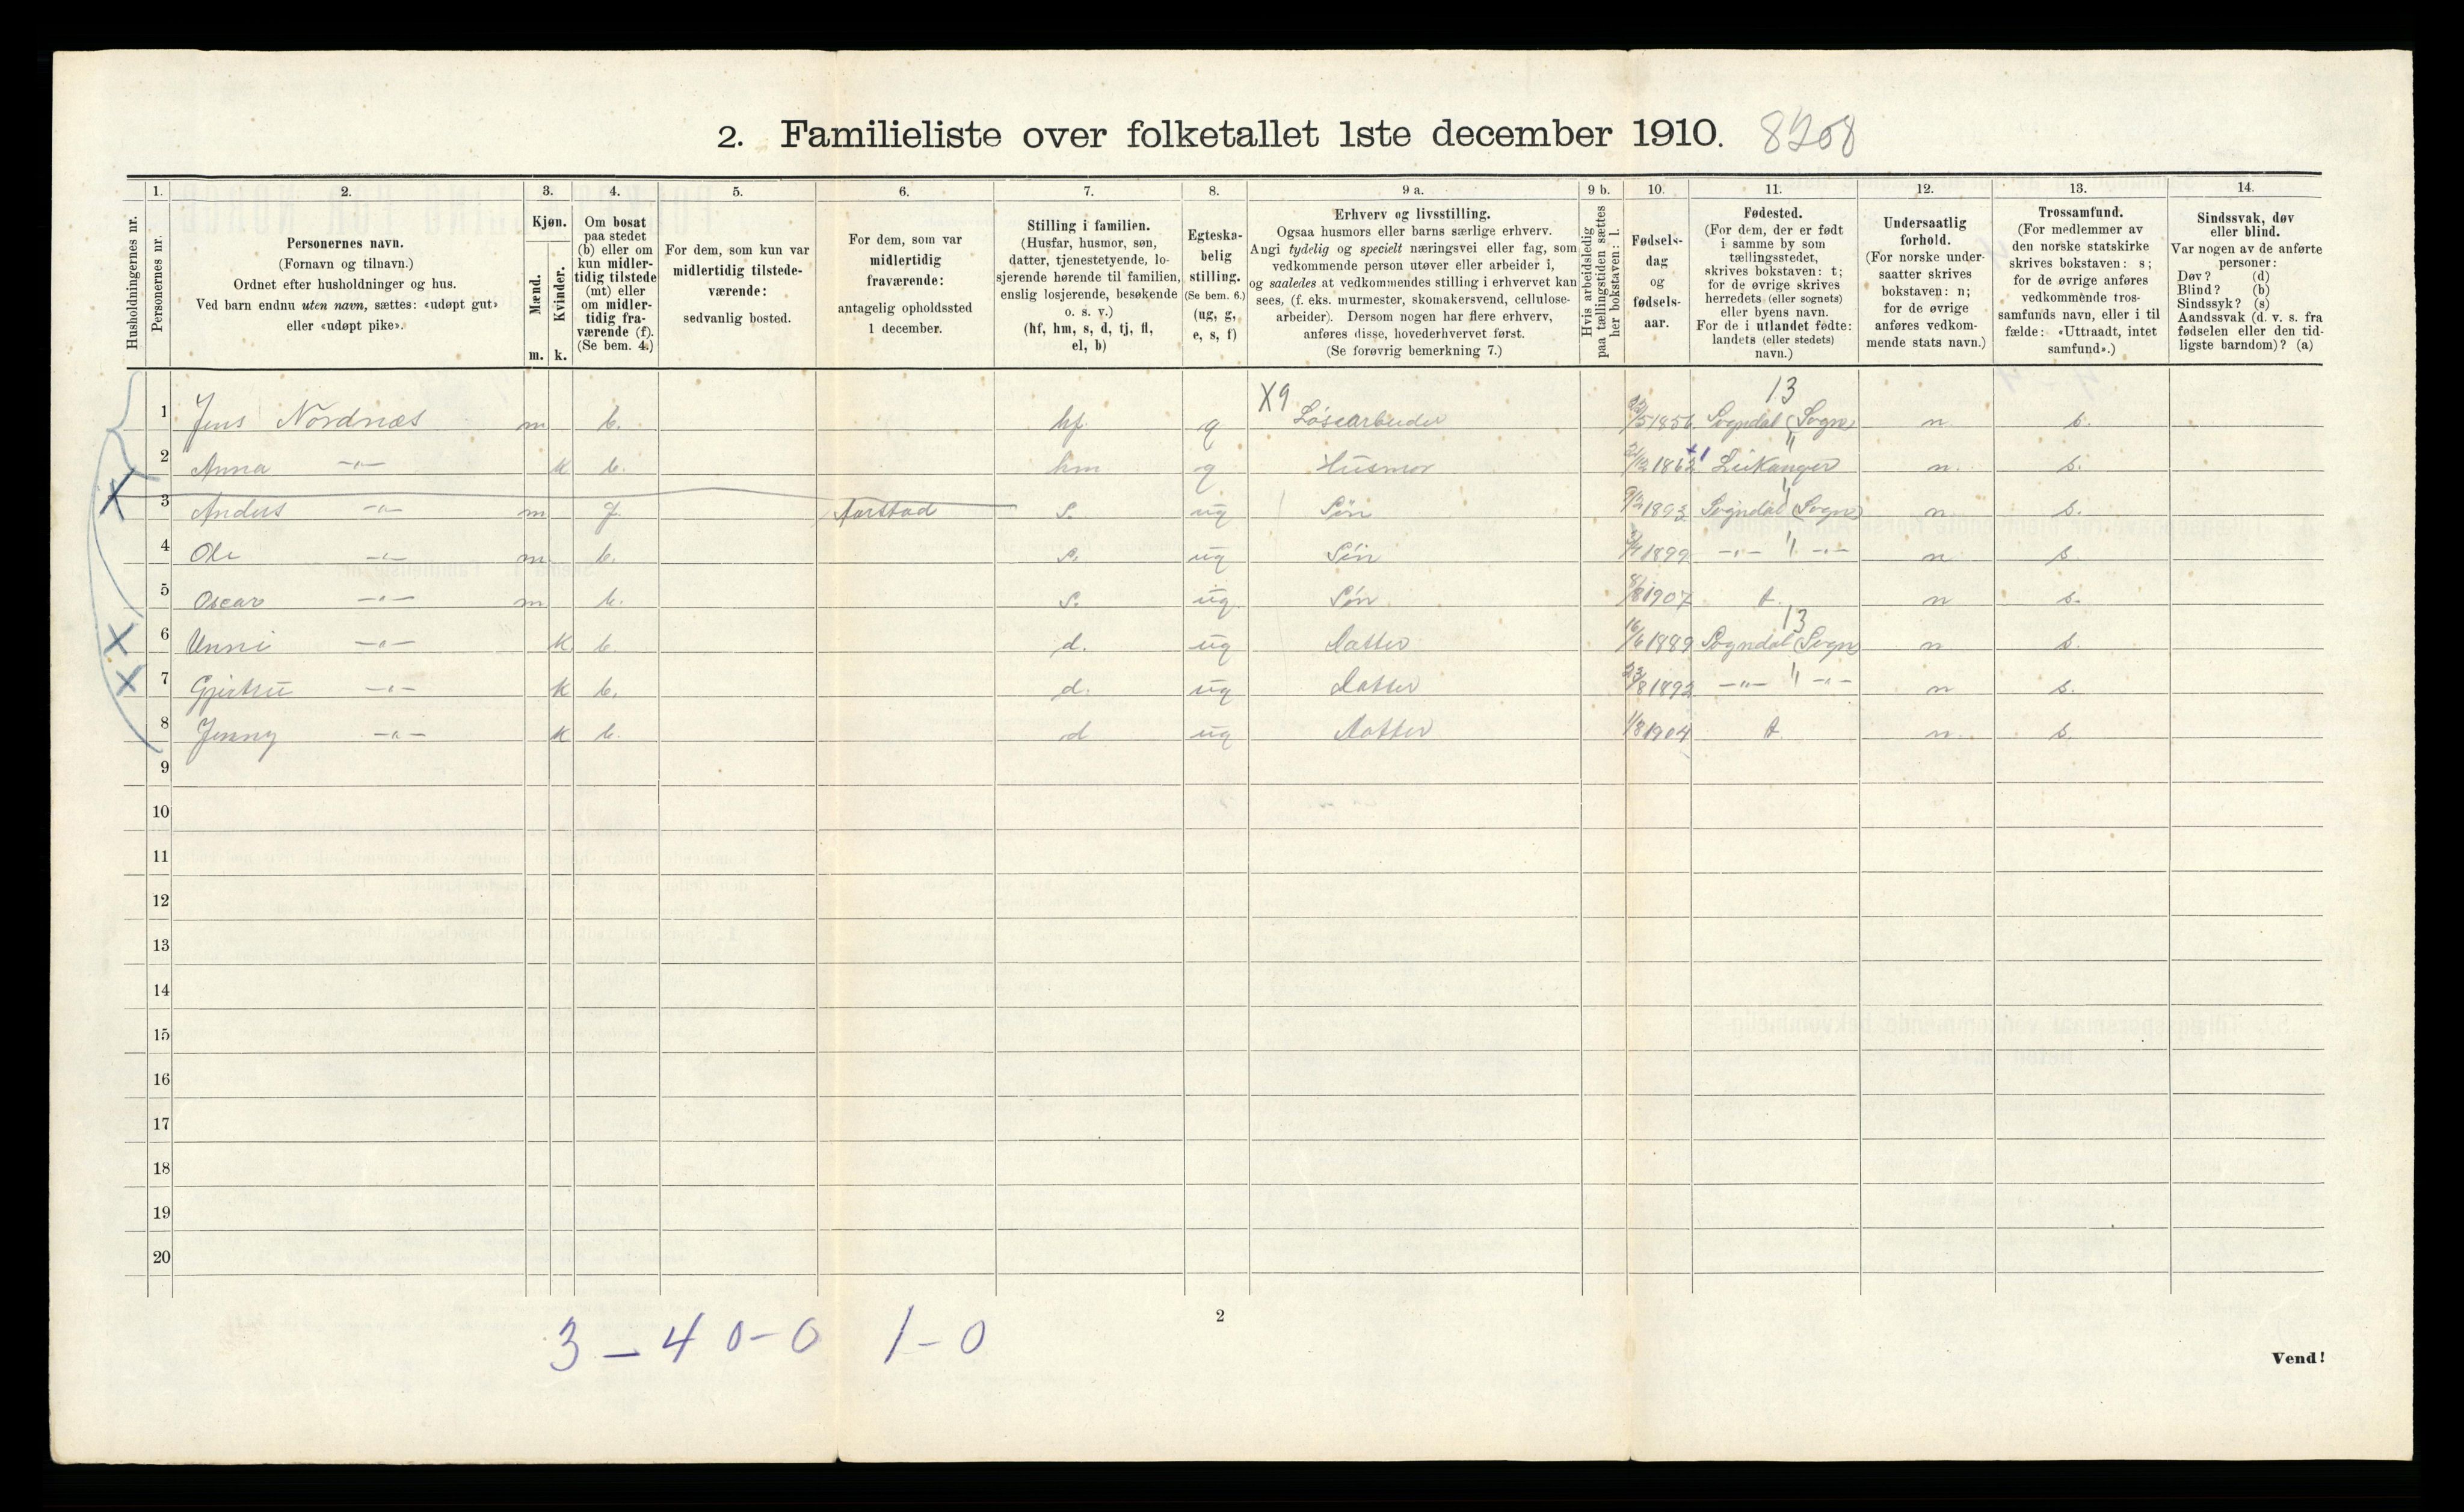 2. Familieliste over folketallet 1ste december 1910. 8208
Husholdningernes nr.
1.
Personernes nr.
2.
Personernes navn.
(Fornavn og tilnavn.)
Ordnet efter husholdninger og hus.
Ved barn endnu uten navn, sættes: «udøpt gut»
eller «udøpt pike».
3.
Kjøn.
Mænd.
Kvinder.
m. k.
4.
Om bosat
paa stedet
(b) eller om
kun midler-
tidig tilstede
(mt) eller
om midler-
tidig fra-
værende (f).
(Se bem. 4.)
5.
For dem, som kun var
midlertidig tilstede-
værende:
sedvanlig bosted.
6.
For dem, som var
midlertidig
fraværende:
antagelig opholdssted
1 december.
7.
Stilling i familien.
(Husfar, husmor, søn,
datter, tjenestetyende, lo-
sjerende hørende til familien,
enslig losjerende, besøkende
o. s. v.)
(hf, hm, s, d, tj, fl,
el, b)
8.
Egteska-
belig
stilling.
(Se bem. 6.)
(ug, g,
e, s, f)
9 a.
Erhverv og livsstilling.
Ogsaa husmors eller barns særlige erhverv.
Angi tydelig og specielt næringsvei eller fag, som
vedkommende person utøver eller arbeider i,
og saaledes at vedkommendes stilling i erhvervet kan
sees, (f. eks. murmester, skomakersvend, cellulose-
arbeider). Dersom nogen har flere erhverv,
anføres disse, hovederhvervet først.
(Se forøvrig bemerkning 7.)
9 b.
Hvis arbeidsledig
paa tællingstiden sættes
her bokstaven: l.
10.
Fødsels-
dag
og
fødsels-
aar.
11.
Fødested.
(For dem, der er født
i samme by som
tællingsstedet,
skrives bokstaven: t;
for de øvrige skrives
herredets (eller sognets)
eller byens navn.
For de i utlandet fødte:
landets (eller stedets)
navn.)
12.
Undersaatlig
forhold.
(For norske under-
saatter skrives
bokstaven: n;
for de øvrige
anføres vedkom-
mende stats navn.)
13.
Trossamfund.
(For medlemmer av
den norske statskirke
skrives bokstaven: s;
for de øvrige anføres
vedkommende tros-
samfunds navn, eller i til
fælde: «Uttraadt, intet
samfund».)
14.
Sindssvak, døv
eller blind.
Var nogen av de anførte
personer:
Døv? (d)
Blind? (b)
Sindssyk? (s)
Aandssvak (d. v. s. fra
fødselen eller den tid-
ligste barndom)? (a)
X9 13
1 Jens Nordnæs m b. hf. g Løsearbeider /5 1856 Sogndal (Sogn) n. s.
2 Anna -"- k b. hm g Husmor /12 1862 Leikanger n. s.
3 Anders -"- m f. Aarstad s. ug Søn 9/2 1893 Sogndal (Sogn) n. s.
4 Ole -"- m b. s. ug Søn 1899 -"- " -"- n s.
5 Oscar -"- m b. s. ug Søn 8/8 1907 t. n s.
6 Unni -"- k b d. ug Datter 16/6 1889 13 Sogndal (Sogn) n s.
7 Gjertru -"- k b. d. ug Datter 23/8 1892 -"- " -"- n s.
8 Jenny -"- k b. d ug Datter 1/8 1904 t. n. s.
9
10
11
12
13
14
15
16
17
18
19
20
2
3 - 4 0 - 0 1 - 0
Vend!